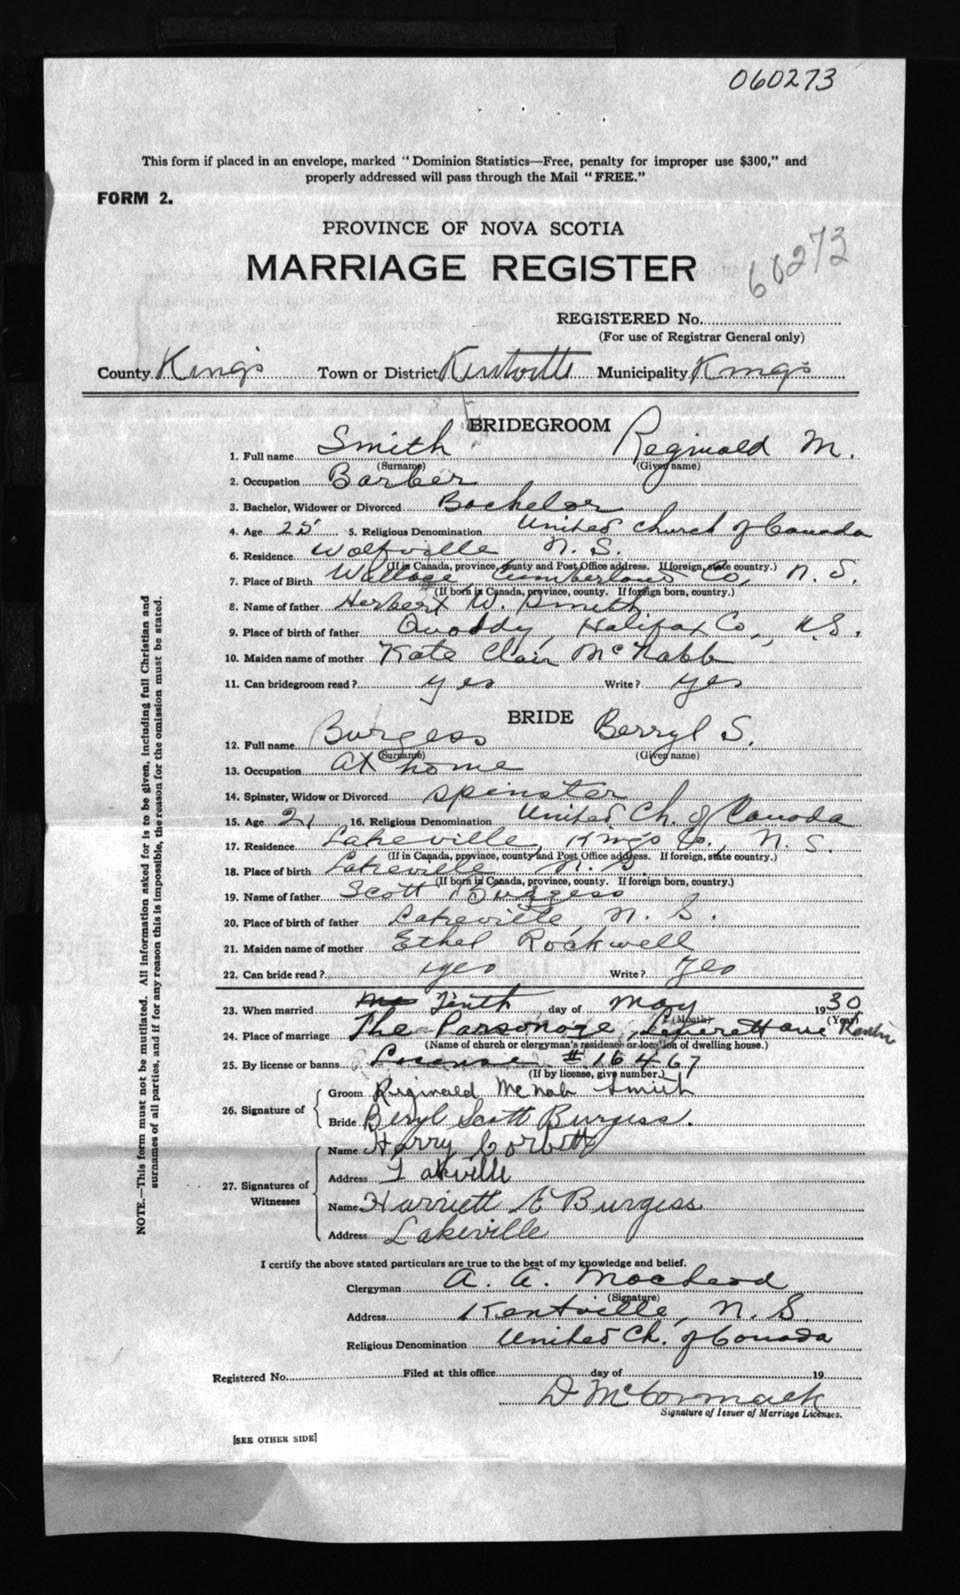 060273
This form if placed in an envelope, marked "Dominion Statistics—Free, penalty for improper use $300," and
properly addressed will pass through the Mail "FREE."
FORM 2.
PROVINCE OF NOVA SCOTIA
MARRIAGE REGISTER
60273
REGISTERED No.
(For use of Registrar General only)
County Kings Town or District Kentville Municipality Kings
BRIDEGROOM
1. Full name Smith Reginald M.
(Surname) (Given name)
2. Occupation Barber
3. Bachelor, Widower or Divorced Bachelor
4. Age 25 5. Religious Denomination United Church of Canada
6. Residence Wolfville N. S.
(If in Canada, province, county and Post Office address. If foreign, state country.)
7. Place of Birth Wallace, Cumberland Co., N. S.
(If born in Canada, province, county. If foreign born, country.)
8. Name of father Herbert W. Smith
9. Place of birth of father Quoddy, Halifax Co., N.S.
10. Maiden name of mother Kate Clair McNabb
11. Can bridegroom read? yes Write? yes
BRIDE
12. Full name Burgess Berryl S.
(Surname) (Given name)
13. Occupation At home
14. Spinster, Widow or Divorced spinster
15. Age 21 16. Religious Denomination United Ch. of Canada
17. Residence Lakeville, Kings Co., N. S.
(If in Canada, province, county and Post Office address. If foreign, state country.)
18. Place of birth Lakeville N. S
(If born in Canada, province, county. If foreign born, country.)
19. Name of father Scott Burgess
20. Place of birth of father Lakeville, N. S.
21. Maiden name of mother Ethel Rockwell
22. Can bride read? yes Write? yes
23. When married Tenth day of May 1930
(Month) (Year)
24. Place of marriage The Parsonage, Leverett ave
(Name of church or clergyman's residence or location of dwelling house.)
25. By license or banns License # 16467
(If by license, give number.)
26. Signature of
Groom Reginald McNab Smith
Bride Beryl Scott Burgess.
27. Signatures of Witnesses
Name Harry Corbett
Address Lakville
Name Harriett E Burgess
Address Lakeville
I certify the above stated particulars are true to the best of my knowledge and belief.
Clergyman A. A. MacLeod
(Signature)
Address Kentville, N. S.
Religious Denomination United Ch. of Canada
Registered No. Filed at this office day of 19
D McCormack
Signature of Issuer of Marriage Licenses.
[SEE OTHER SIDE]
NOTE.—This form must not be mutilated. All information asked for is to be given, including full Christian and
surnames of all parties, and if for any reason this is impossible, the reason for the omission must be stated.